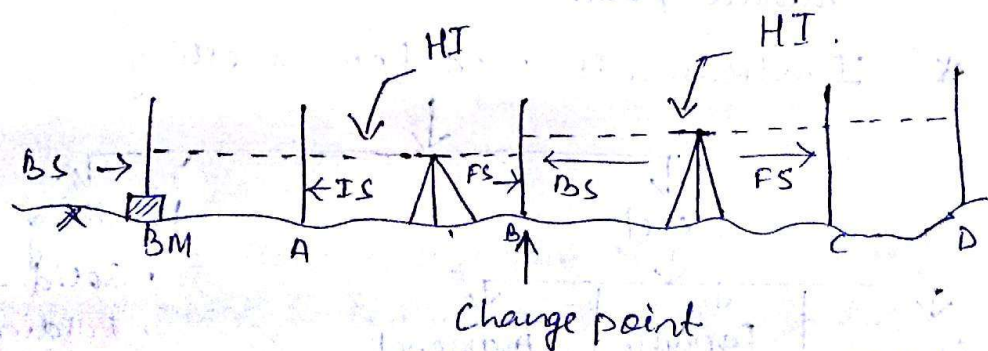 HI HI.
BS IS FS BS FS
BM A B C D
Change point